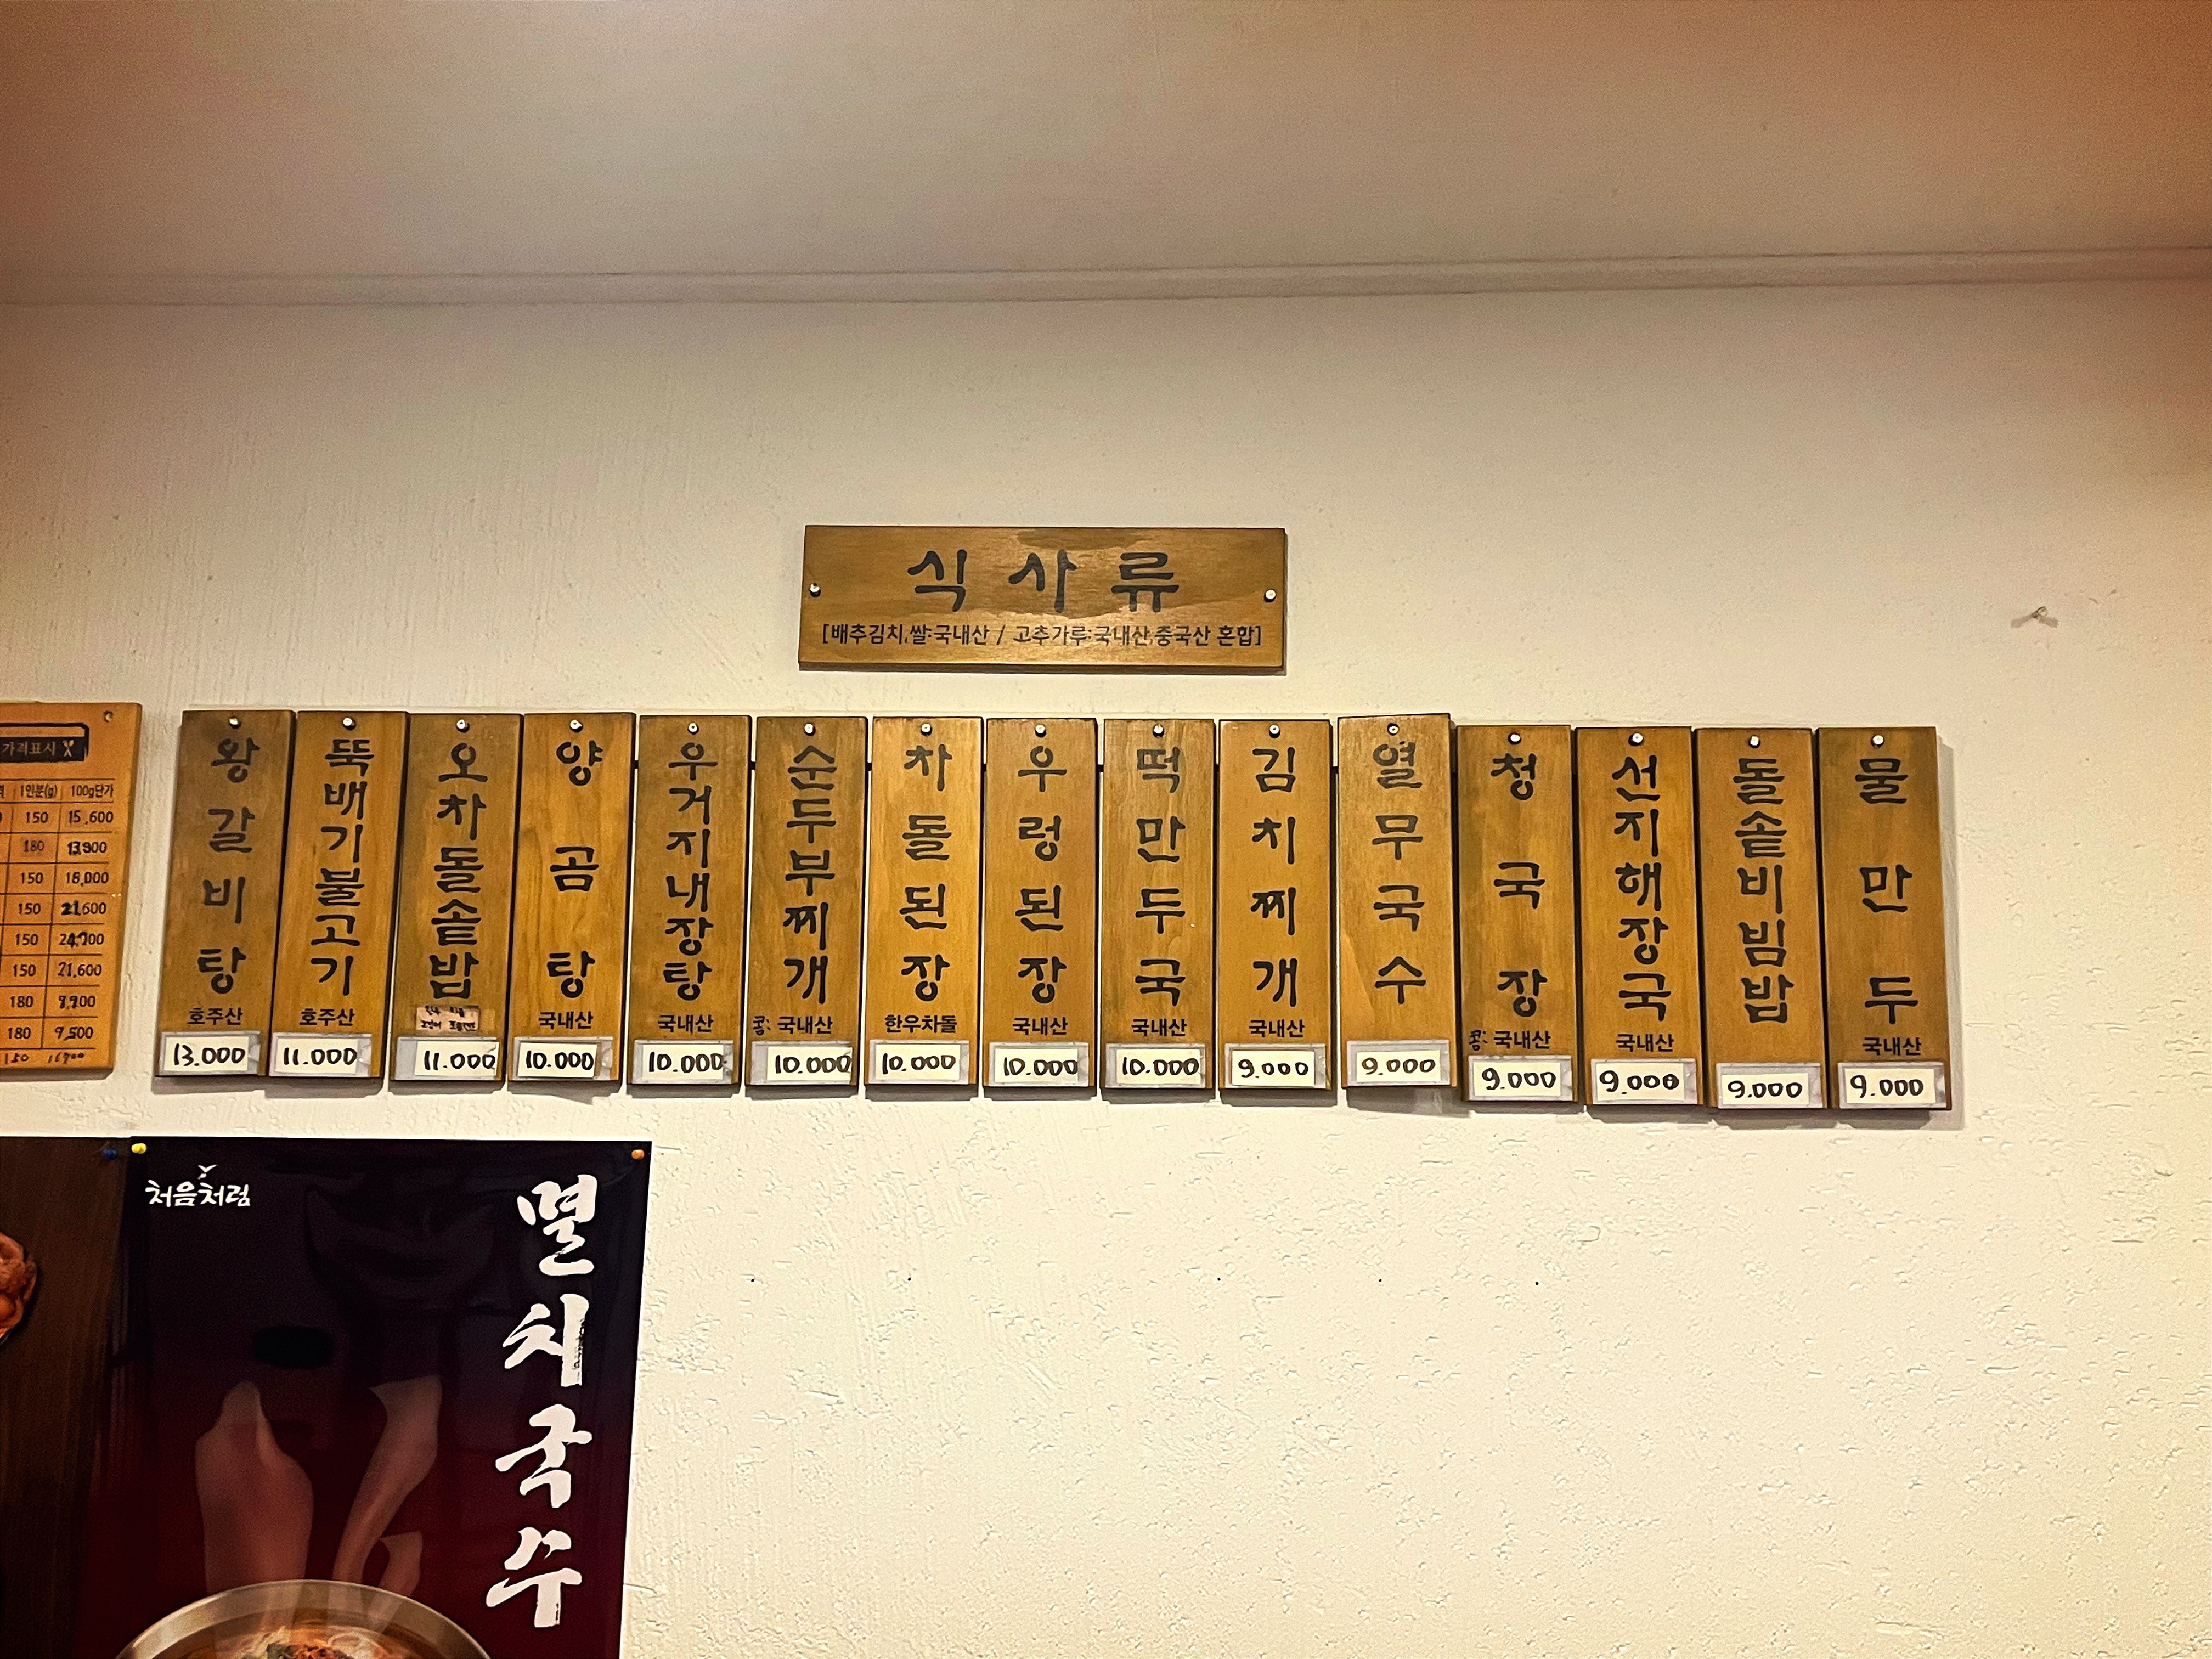 식사류
[배추김치,쌀:국내산 / 고추가루:국내산,중국산 혼합]
가격표시
1인분(g) 100g단가
150 15,600
180 13,900
150 18,000
150 21,600
150
150 21,600
180
180 9,500
150
왕갈비탕
호주산
13.000
뚝배기불고기
호주산
11.000
오차돌솥밥
11.000
양곰탕
국내산
10.000
우거지내장탕
국내산
10.000
순두부찌개
콩: 국내산
10.000
차돌된장
한우차돌
10.000
우렁된장
국내산
10.000
떡만두국
국내산
10.000
김치찌개
국내산
9.000
열무국수
9.000
청국장
콩: 국내산
9.000
선지해장국
국내산
9.000
돌솥비빔밥
9.000
물만두
국내산
9.000
처음처럼
멸치국수